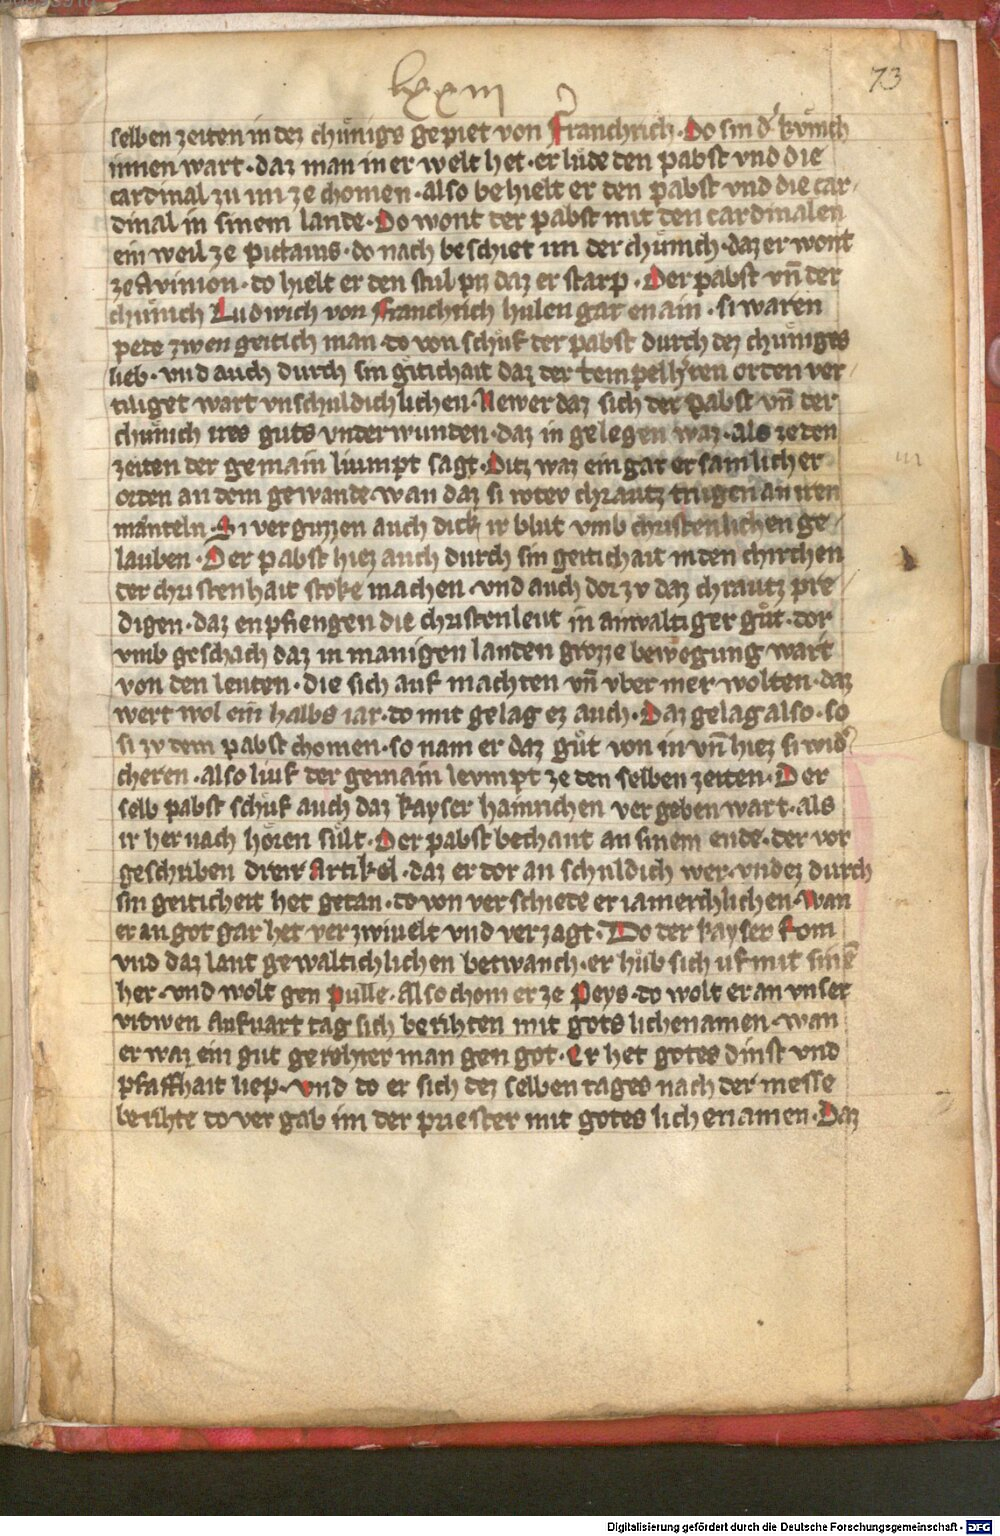 lxxiii
73
selben zeiten in dez chuͤnigs gepiet von Franchrich · Do sin dˢ kuͤnich
innen wart · daz man in er welt het · er luͤde den pabst vnd die
cardinal zu im ze chomen · also behielt er den pabst vnd die car⸗
dinal in sinem lande · Do wont der pabst mit den cardinalen
ein weil ze pictauis · do nach beschiet im der chuͤnich · daz er wont
ze Avinion · do hielt er den stul pis daz er starp · Der pabst vn̄ der
chuͤnich Ludwich von Franchrich hulen gar en ain · si waren
pede zwen geitich man · do von schuͤf der pabst durch dez chuͤniges
lieb · vnd auch durch sin gitichait daz der tempellˢren orden ver⸗
tiliget wart vnschuldichlichen · Newer daz sich der Pabst vn̄ der
chuͤnich ires guts vnderwunden · daz in gelegen waz · als ze den
zeiten der gemain liumpt sagt · Ditz waz ein gar ersamlicher
orden an dem gewande wan daz si roter chrautz trugen an iren
maͤnteln · Si verguzzen auch dick ir blut vmb christenlichen ge⸗
lauben · Der pabst hiez auch durch sin geitichait in den chirchen
der christenhait stoke machen · vnd auch dor zv daz chrautz pre⸗
digen · daz enpfiengen die christenleut in ainvaltiger guͤt · dor
vmb geschach daz in manigen landen grozze bewegung wart
von den leuten · die sich auf machten vn̄ vber mer wolten · daz
wert wol ein halbs iar · do mit gelag ez auch · Daz gelag also · so
si zv dem pabst chomen · so nam er daz guͤt von in vn̄ hiez si widˢ
cheren · also liuf der gemain levmpt ze den selben zeiten · Der
selb pabst schuͤf auch daz kayser hainrichen vergeben wart · als
ir her nach hoͤren suͤlt · Der pabst bechant an sinem ende · der vor
geschriben dreir Artikel · daz er dor an schuldich wer · vnd ez durch
sin geiticheit het getan · do von verschiede er iamerchlichen · Wan
er an got gar het verzwiuelt vnd verzagt · Do der kayser kom
vnd daz lant gewaltichlichen betwanch · er huͤb sich uf mit sinē
her · vnd wolt gen pulle · Also chom er ze Peys · do wolt er an vnser
vrowen Aufuart tag sich berihten mit gots lichenamen · wan
er waz ein gut gerehter man gen got · Er het gotes dinst vnd
pfaffhait liep · vnd do er sich dez selben tages nach der messe
berihte do vergab im der priester mit gotes lichenamen · Daz
Digitalisierung gefördert durch die Deutsche Forschungsgemeinschaft - DFG